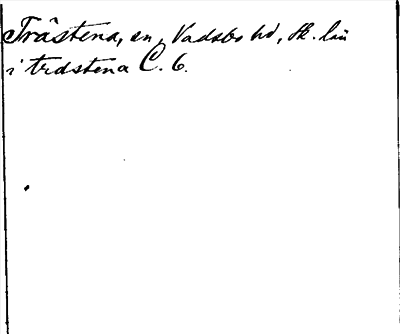 Trästena, sn, Vadsbo hd, Sk. län
i trdstena C. 6.